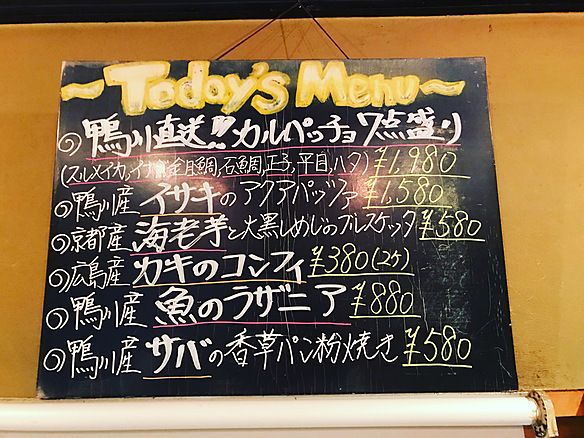 ~Today's Menu~
◎鴨川直送!!カルパッチョ7点盛り
(スルメイカ,イナダ,金目鯛,石鯛,正子,平目,ハタ)¥1,980
◎鴨川産 イサキのアクアパッツァ¥1,580
◎京都産 海老芋と大黒しめじのブルスケッタ¥580
◎広島産 カキのコンフィ¥380(2ケ)
◎鴨川産 魚のラザニア ¥880
◎鴨川産 サバの香草パン粉焼き ¥580